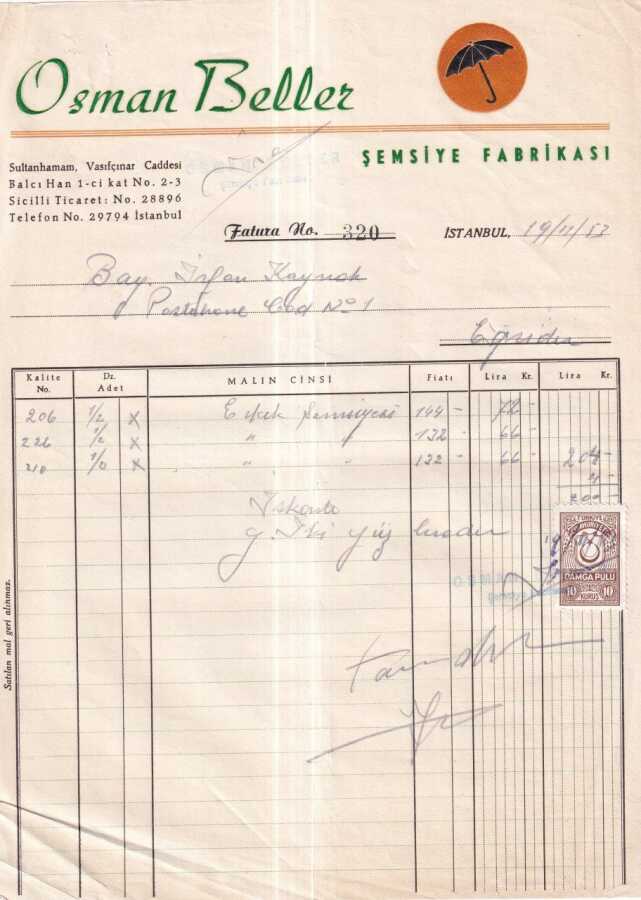 Osman Beller
ŞEMSİYE FABRİKASI
Sultanhamam, Vasıfçınar Caddesi
Balcı Han 1-ci kat No. 2-3
Sicilli Ticaret: No. 28896
Telefon No. 29794 İstanbul
Fatura No. 320
İSTANBUL, 19/11/53
Bay. İrfan Kaynak
Postahane Cad No 1
Eğridir
Kalite No. Dz. Adet MALIN CİNSİ Fiatı Lira Kr. Lira Kr.
206 1/2 x Erkek Şemsiyesi 144 - 72 -
226 1/2 x " " 132 - 66 -
210 1/2 x " " 132 - 66 - 204 -
4 -
200 -
İskonto
Y. İki yüz liradır
TÜRKİYE CUMHURİYETİ
DAMGA PULU
10 KURUŞ 10
Satılan mal geri alınmaz.